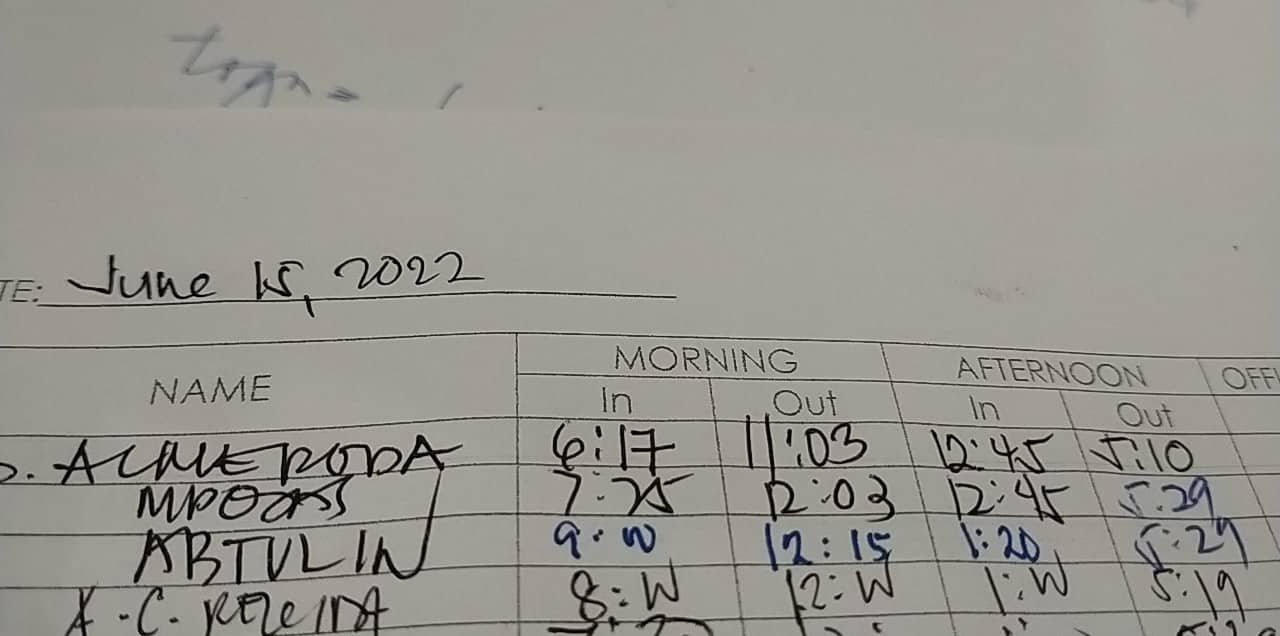 TE: June 15, 2022
NAME MORNING AFTERNOON OFFI
In Out In Out
ALMERODA 6:17 11:03 12:45 5:10
7:25 12:03 12:45 5:29
ABTULIN 9:00 12:15 1:20 5:29
8:00 12:00 1:00 5:19